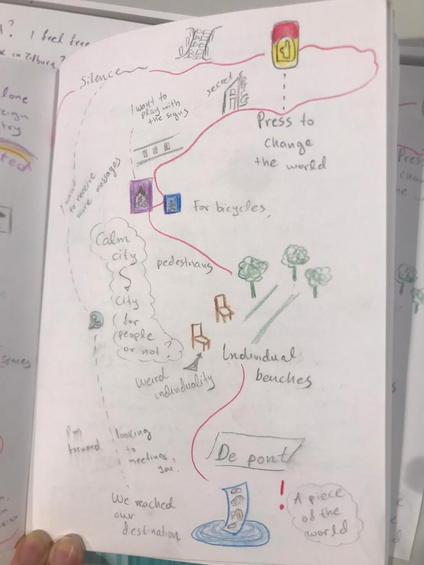 Silence
secret
I want to
play with
the signs
Press to
change
the world
to receive
more messages
For bicycles,
pedestrians
Calm
city
City
for
people
or not?
Individual
benches
Weird
individuality
I'm looking
forward to
meeting you.
De pont
We reached
our
destination
!
A piece
of the
world